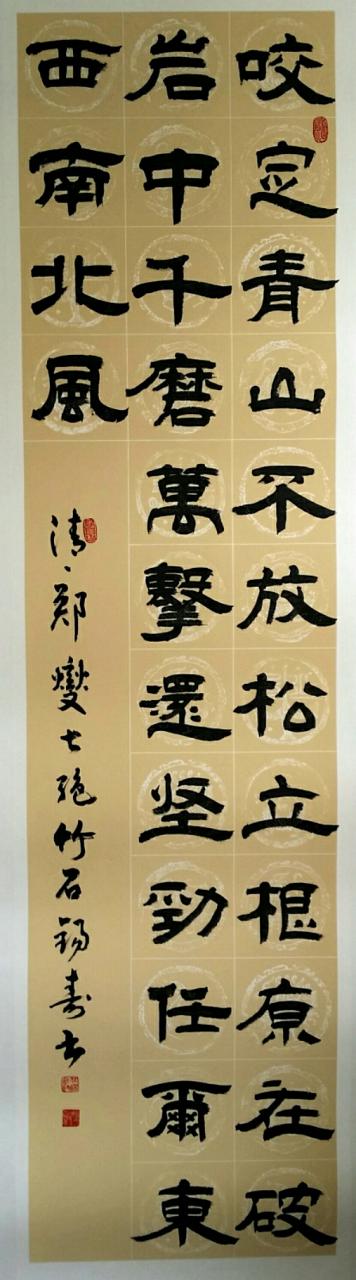 咬定青山不放松立根原在破
岩中千磨萬擊還坚勁任爾東
西南北風
清、郑燮七绝竹石錫壽书